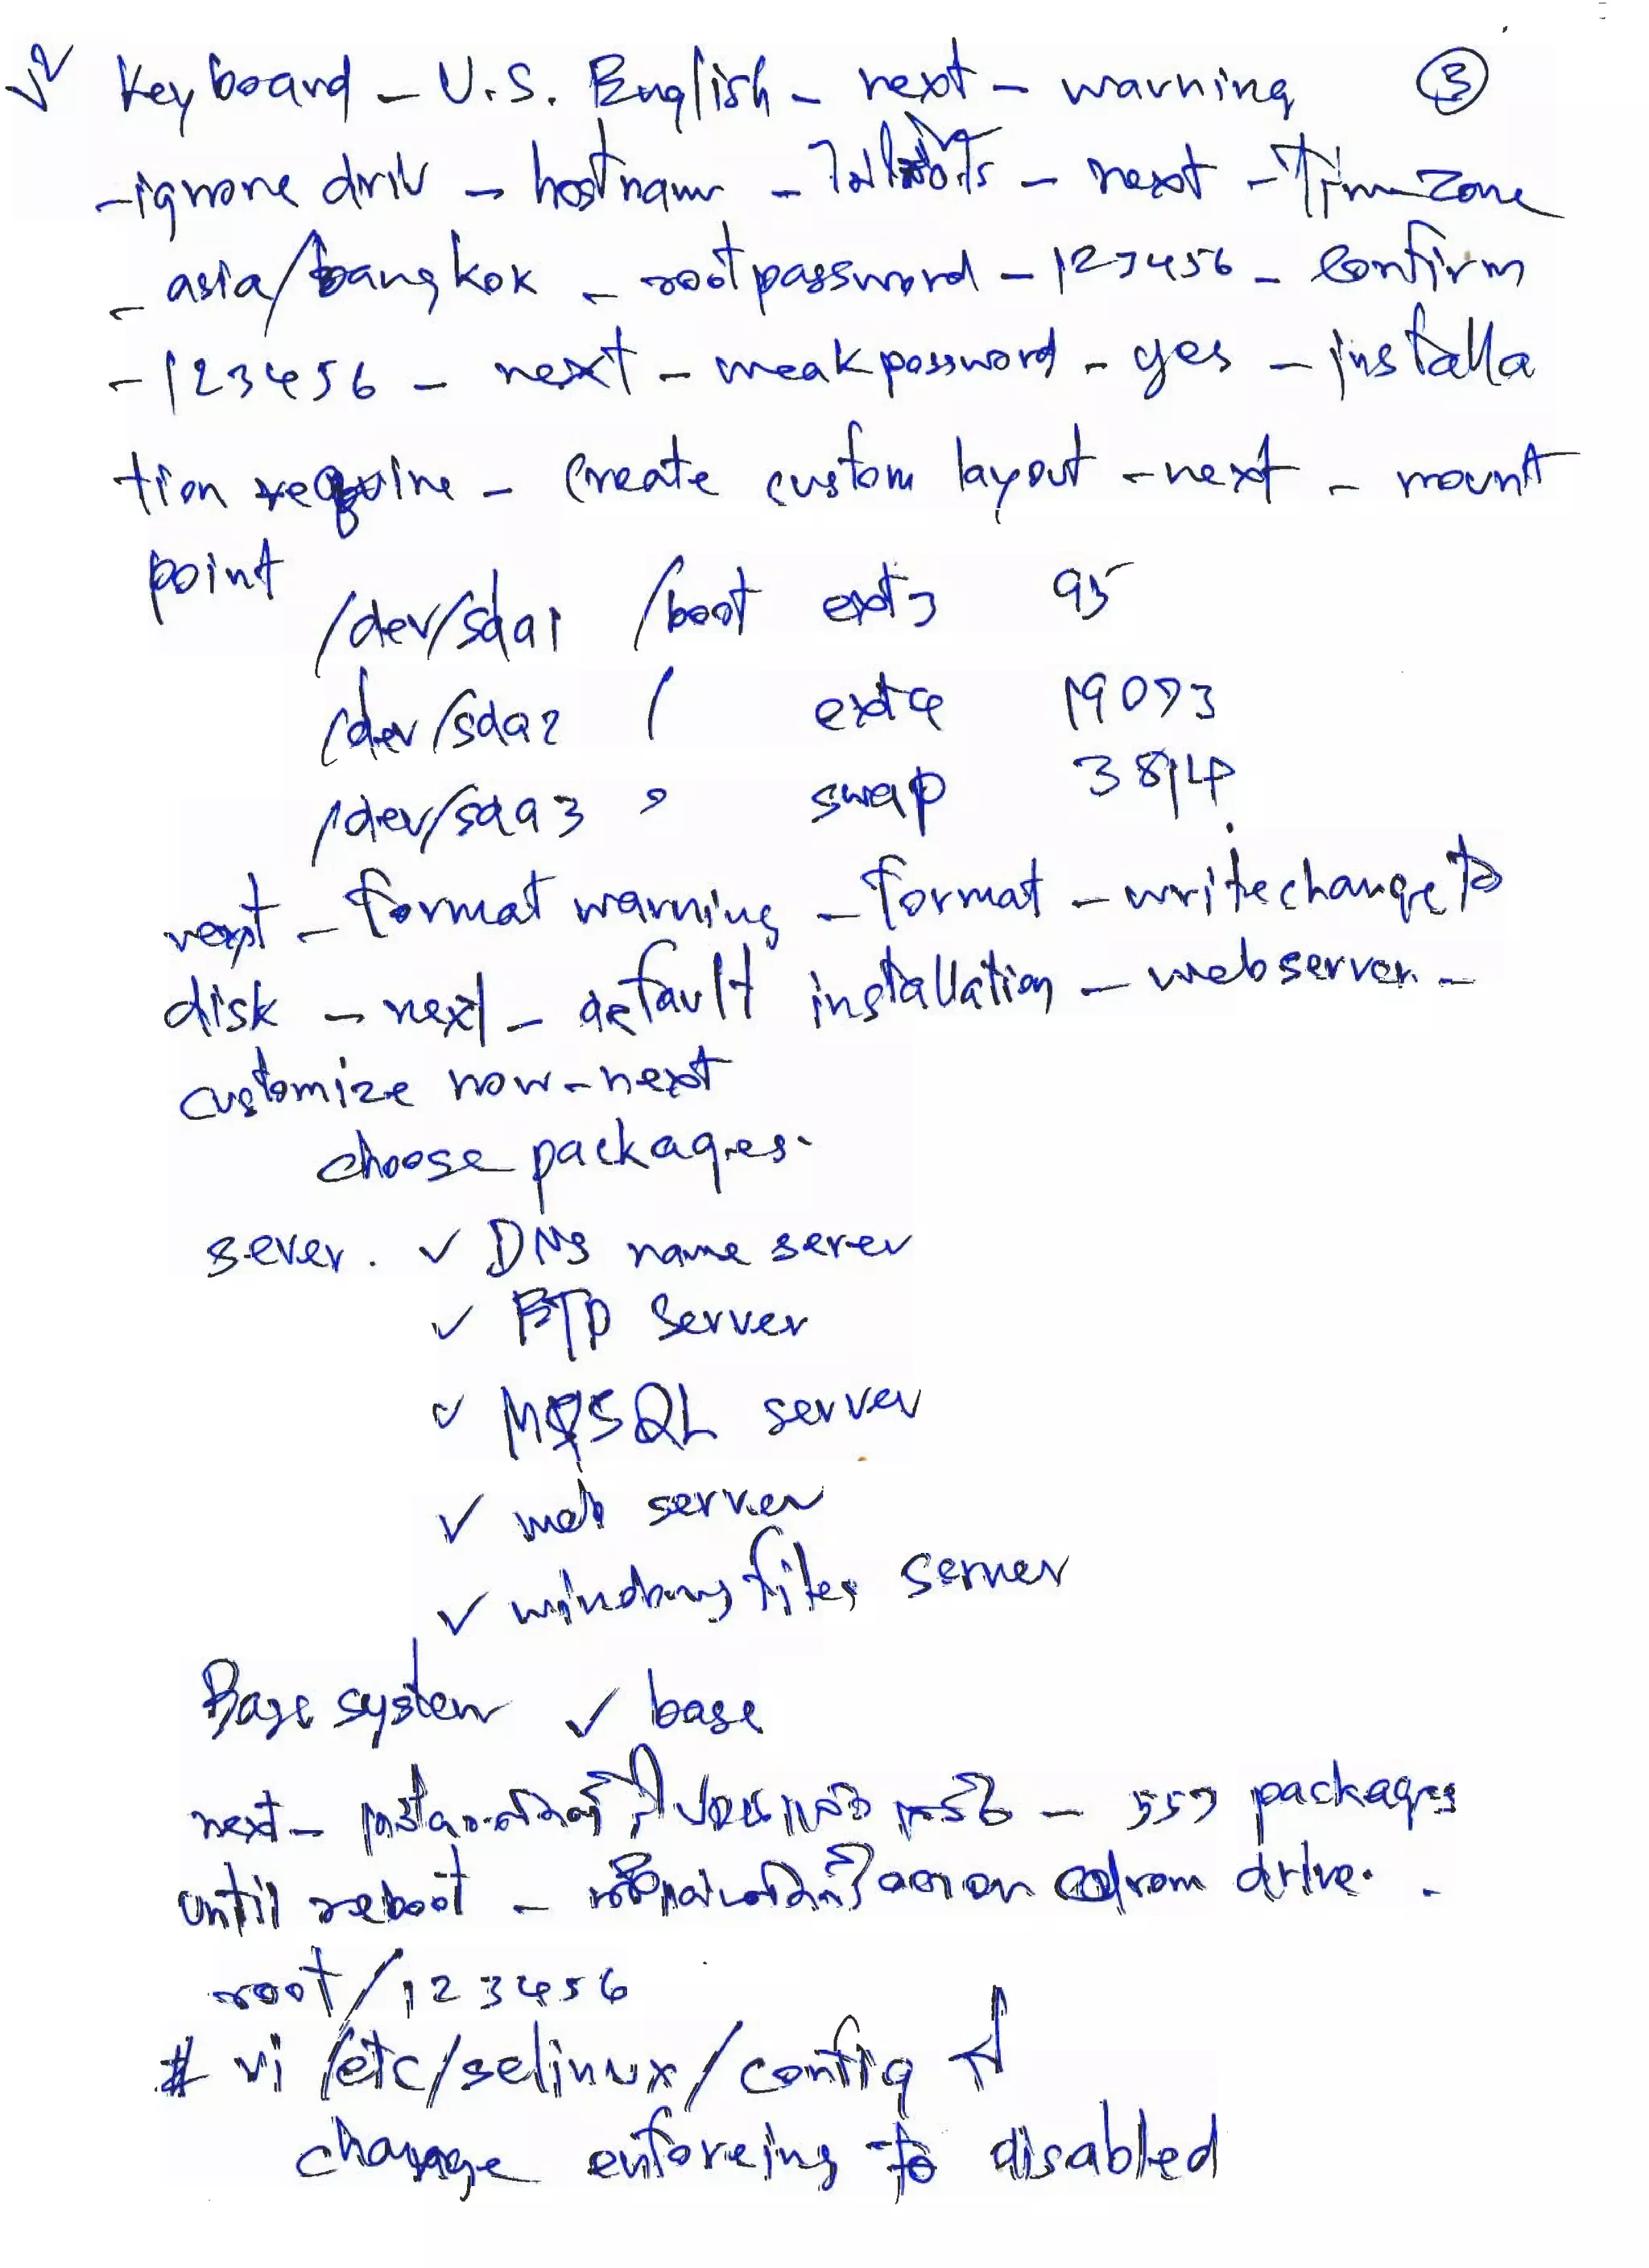 Keyboard - U.S. English - next - warning ③
- ignore driv - hostname - - next - Time zone
- asia/bangkok - root password - 123456 - confirm
- 123456 - next - weak password - yes - installa
tion require - create custom layout - next - mount
point
/dev/sda1 /boot ext3 95
/dev/sda2 / ext4 19073
/dev/sda3 swap 3814
next - format warning - format - write change to
disk - next - default installation - webserver -
customize now - next
choose packages.
sever. ✓ DNS name serer
✓ FTP Server
✓ MySQL server
✓ web server
✓ windows files server
Base system ✓ base
next - - 557 packages
until reboot - ออกจาก cdrom drive.
root/123456
# vi /etc/selinux/config
change enforcing to disabled